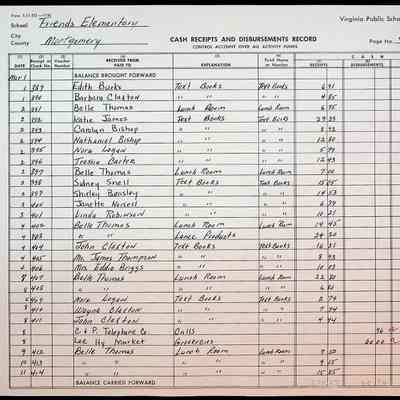 School Friends Elementary
Virginia Public Scho
City
County Montgomery
CASH RECEIPTS AND DISBURSEMENTS RECORD
CONTROL ACCOUNT OVER ALL ACTIVITY FUNDS
Page No.
DATE Receipt or Check No. Voucher Number RECEIVED FROM PAID TO EXPLANATION Fund Name or Number CASH RECEIPTS DISBURSEMENTS
BALANCE BROUGHT FORWARD
1 389 Edith Burks Text Books Text Books 6 91
1 390 Barbara Claxton " " " " 4 95
2 391 Belle Thomas Lunch Room Lunch Room 6 85
2 392 Katie James Text Books Text Books 29 39
2 393 Carolyn Bishop " " " " 8 92
2 394 Nathaniel Bishop " " " " 12 80
2 395 Nora Logan " " " " 5 99
2 396 Tressie Carter " " " " 12 43
2 397 Belle Thomas Lunch Room Lunch Room 7 00
2 398 Sidney Snell Text Books Text Books 15 05
2 399 Shirley Beasley " " " " 14 53
2 400 Janette " " " " 6 79
3 401 Linda Robinson " " " " 10 21
4 402 Belle Thomas Lunch Room Lunch Room 14 45
4 403 " " Lance Products " " 24 20
4 404 John Claxton Text Books Text Books 16 21
4 405 Mr. James Thompson " " " " 8 93
4 406 Mrs. Eddie Briggs " " " " 10 03
8 407 Belle Thomas Lunch Room Lunch Room 22 80
408 " " " " " " 6 80
409 Nora Logan Text Books Text Books 2 74
8 410 Wayne Claxton " " " " 7 94
8 411 John Claxton " " " " 4 44
8 C & P. Telephone Co Calls 96
8 Lee Hy Market Groceries 20 00
9 412 Belle Thomas Lunch Room Lunch Room 9 50
11 413 " " " " " " 9 15
11 414 " " " " " " 15 85
BALANCE CARRIED FORWARD